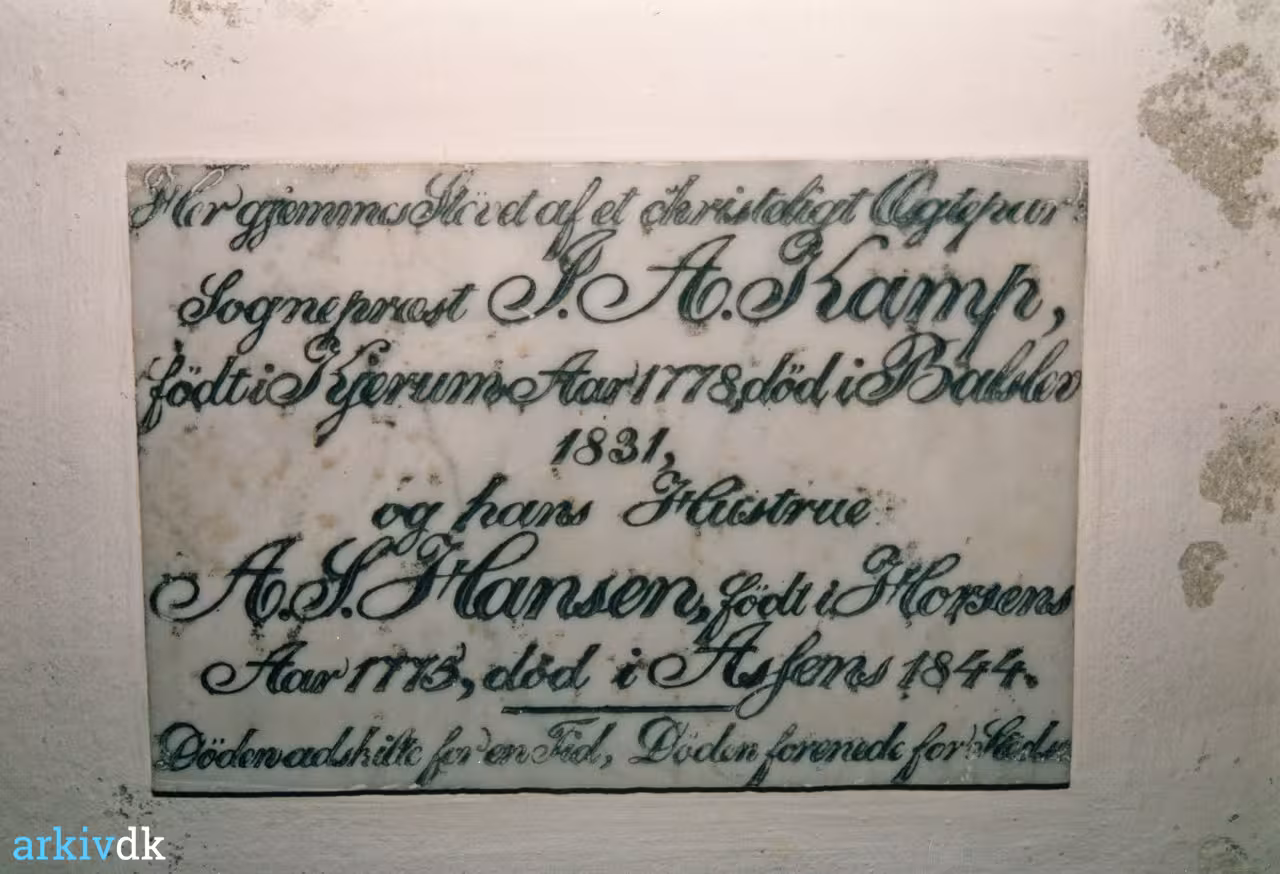 Her gjemmes Stövet af et christeligt Ægtepar
Sognepræst J. A. Kamp,
født i Kjerum Aar 1778, död i Balslev
1831,
og hans Hustrue
A. S. Hansen, födt i Horsens
Aar 1775, död i Assens 1844.
Döden adskilte for en Tid, Döden forenede for Stedse
arkivdk